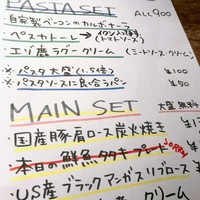 PASTA SET ALL 900
自家製ベーコンのカルボナーラ
ペスカトーレ → (トマトソース)
エゾ鹿ラグークリーム (ミートソース・クリーム)
※パスタ大盛(1.5倍) ¥100
※パスタソースに合うパン ¥50
MAIN SET 大盛無料
・国産豚肩ロース炭火焼き
・本日の鮮魚タタキプレート SORRY
・US産ブラックアンガスリブロース
クリーム